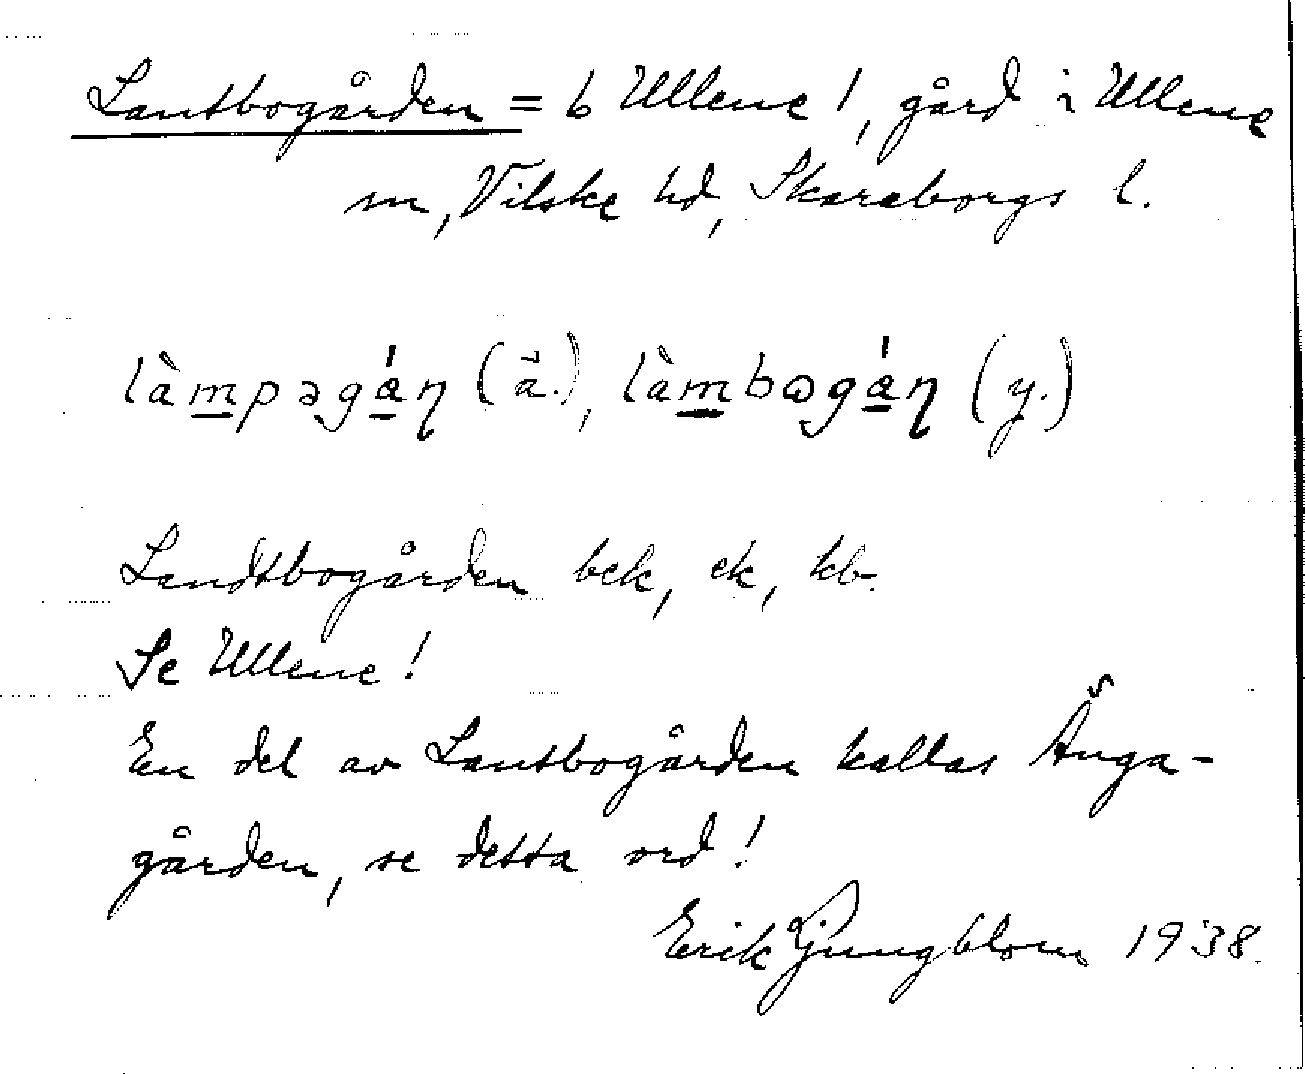 Lantbogården = b Ullene 1, gård i Ullene
sn, Vilske hd, Skaraborgs l.
làmpəgán (ä.), làmbωgán (y.)
Landtbogården bek, ek, kb.
Se Ullene!
En del av Lantbogården kallas Änga-
gården, se detta ord!
Erik Ljungblom 1938.